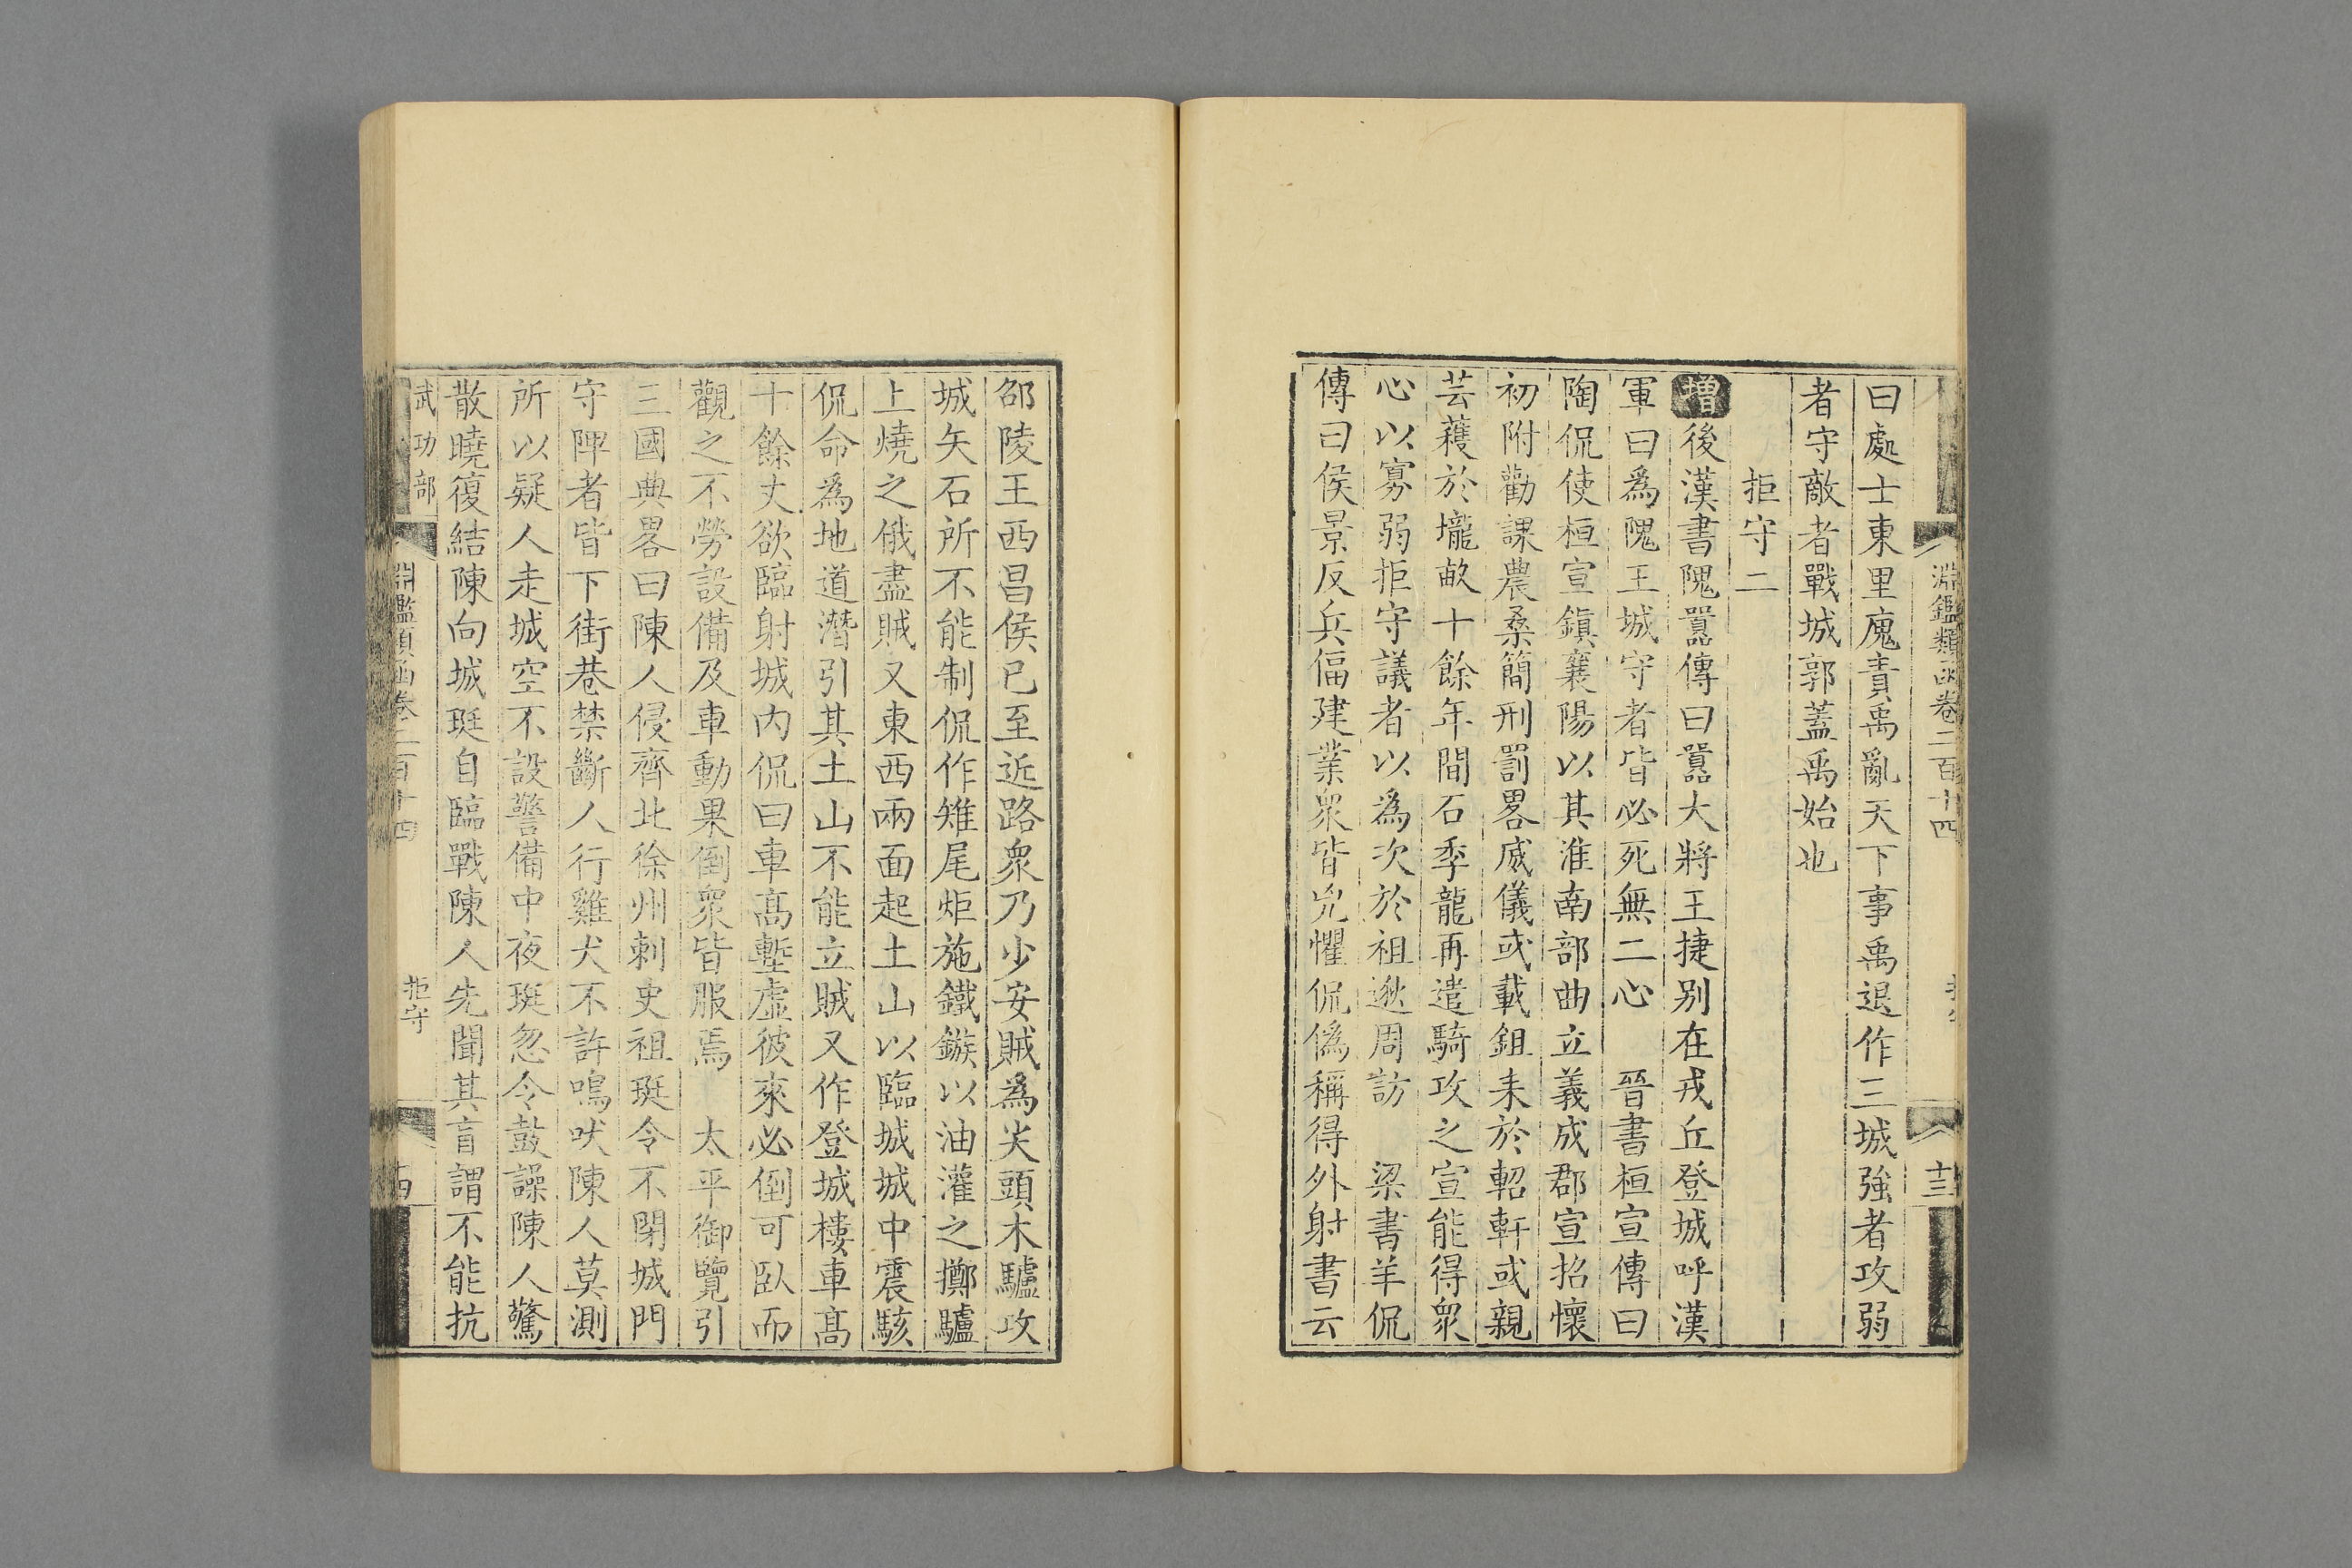 淵鑑類函卷二百十四
十三
曰處士東里廆責禹亂天下事禹退作三城強者攻弱
者守敵者戰城郭蓋禹始也
拒守二
增後漢書隗囂傳曰囂大將王捷别在戎丘登城呼漢
軍曰爲隗王城守者皆必死無二心　晉書桓宣傳曰
陶侃使桓宣鎮襄陽以其淮南部曲立義成郡宣招懷
初附勸課農桑簡刑罰畧威儀或載鉏耒於軺軒或親
芸穫於壠畝十餘年間石季龍再遣騎攻之宣能得衆
心以寡弱拒守議者以爲次於祖逖周訪　梁書羊侃
傳曰侯景反兵偪建業衆皆兇懼侃僞稱得外射書云
邵陵王西昌侯已至近路衆乃少安賊爲尖頭木驢攻
城矢石所不能制侃作雉尾炬施鐵鏃以油灌之擲驢
上燒之俄盡賊又東西兩面起土山以臨城城中震駭
侃命爲地道潛引其土山不能立賊又作登城樓車高
十餘丈欲臨射城内侃曰車高塹虛彼來必倒可臥而
觀之不勞設備及車動果倒衆皆服焉　太平御覽引
三國典畧曰陳人侵齊北徐州刺史祖珽令不閉城門
守陴者皆下街巷禁斷人行雞犬不許鳴吠陳人莫測
所以疑人走城空不設警備中夜珽忽令鼓譟陳人驚
散曉復結陳向城珽自臨戰陳人先聞其盲謂不能抗
武功部
淵鑑類函卷二百十四
拒守
十四